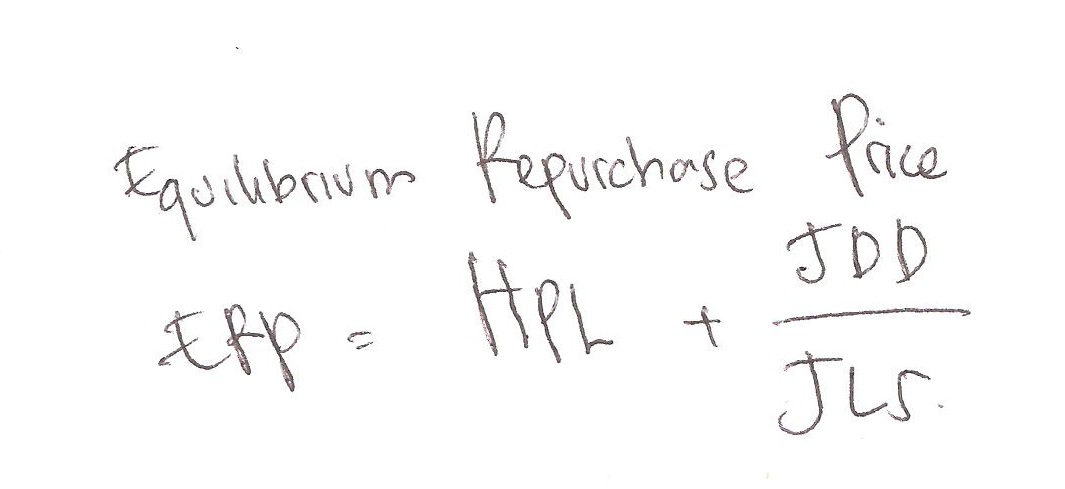 Equilibrium Repurchase Price
ERP = HPL + JDD / JLS.